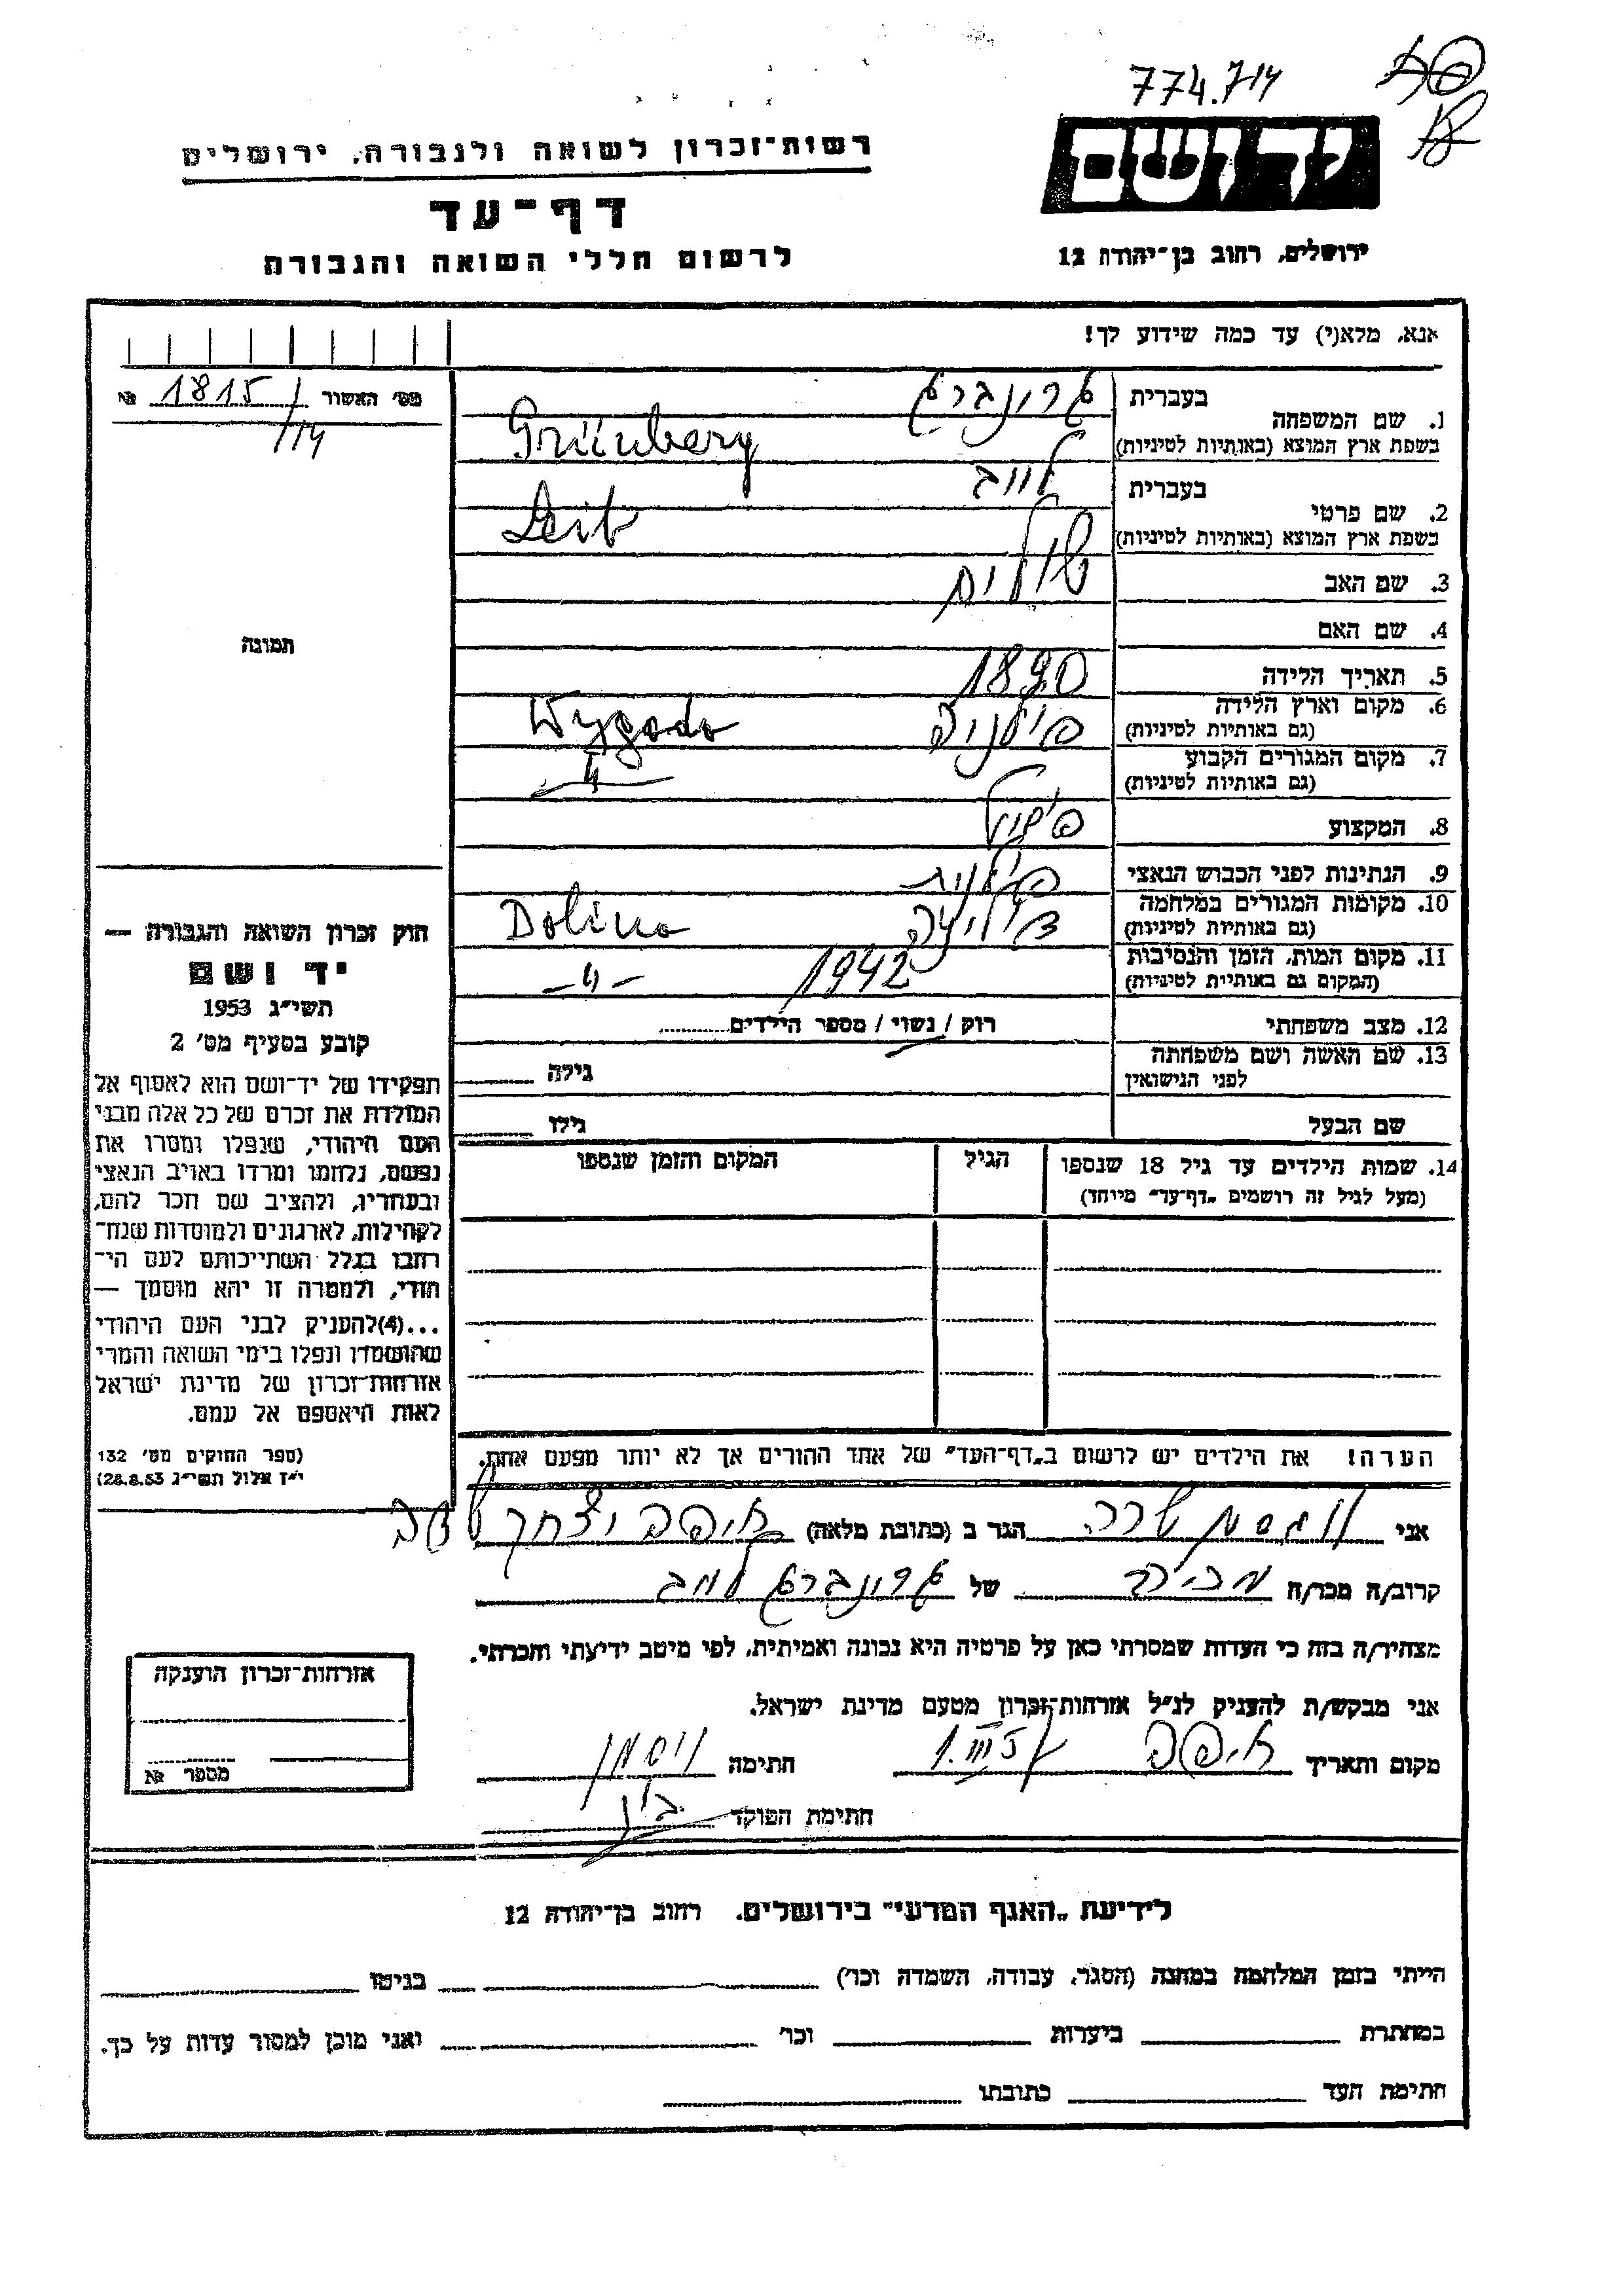 774.714
רשות-זכרון לשואה ולגבורה, ירושלים
יד ושם
דף-עד
לרשום חללי השואה והגבורה
ירושלים, רחוב בן-יהודה 12
אנא, מלא(י) עד כמה שידוע לך!
מס' האשור 1815/14 №
1. שם המשפחה בעברית גרונברג
בשפת ארץ המוצא (באותיות לטיניות) Grünberg
2. שם פרטי בעברית לייב
בשפת ארץ המוצא (באותיות לטיניות) Leib
3. שם האב
4. שם האם
תמונה
5. תאריך הלידה 1890
6. מקום וארץ הלידה (גם באותיות לטיניות) Wygoda
7. מקום המגורים הקבוע (גם באותיות לטיניות) -"-
8. המקצוע
9. הנתינות לפני הכבוש הנאצי פולנית
10. מקומות המגורים במלחמה (גם באותיות לטיניות) דולינה Dolina
11. מקום המות, הזמן והנסיבות (המקום גם באותיות לטיניות) 1942 -"-
12. מצב משפחתי רוק / נשוי / מספר הילדים
13. שם האשה ושם משפחתה לפני הנישואין גילה
שם הבעל גילו
14. שמות הילדים עד גיל 18 שנספו (מעל לגיל זה רושמים „דף-עד" מיוחד) הגיל המקום והזמן שנספו
חוק זכרון השואה והגבורה —
יד ושם
תשי"ג 1953
קובע בסעיף מס' 2
תפקידו של יד-ושם הוא לאסוף אל
המולדת את זכרם של כל אלה מבני
העם היהודי, שנפלו ומסרו את
נפשם, נלחמו ומרדו באויב הנאצי
ובעוזריו, ולהציב שם וזכר להם,
לקהילות, לארגונים ולמוסדות שנח-
רבו בגלל השתייכותם לעם הי-
הודי, ולמטרה זו יהא מוסמך —
...(4)להעניק לבני העם היהודי
שהושמדו ונפלו בימי השואה והמרי
אזרחות-זכרון של מדינת ישראל
לאות היאספם אל עמם.
(ספר החוקים מס' 132
י"ז אלול תשי"ג 28.8.53)
הערה! את הילדים יש לרשום ב„דף-העד" של אחד ההורים אך לא יותר מפעם אחת.
אני שרה הגר ב (כתובת מלאה) חיפה יצחק
קרוב/ה מכר/ה מכירה של גרונברג לייב
מצהיר/ה בזה כי העדות שמסרתי כאן על פרטיה היא נכונה ואמיתית, לפי מיטב ידיעתי והכרתי.
אני מבקש/ת להעניק לנ"ל אזרחות-זכרון מטעם מדינת ישראל.
מקום ותאריך חיפה חתימה
חתימת הפוקד
אזרחות-זכרון הוענקה
מספר №
לידיעת „האגף המדעי" בירושלים, רחוב בן-יהודה 12
הייתי בזמן המלחמה במחנה (הסגר, עבודה, השמדה וכו') בגיטו
במחתרת ביערות וכו' ואני מוכן למסור עדות על כך.
חתימת העד כתובתו